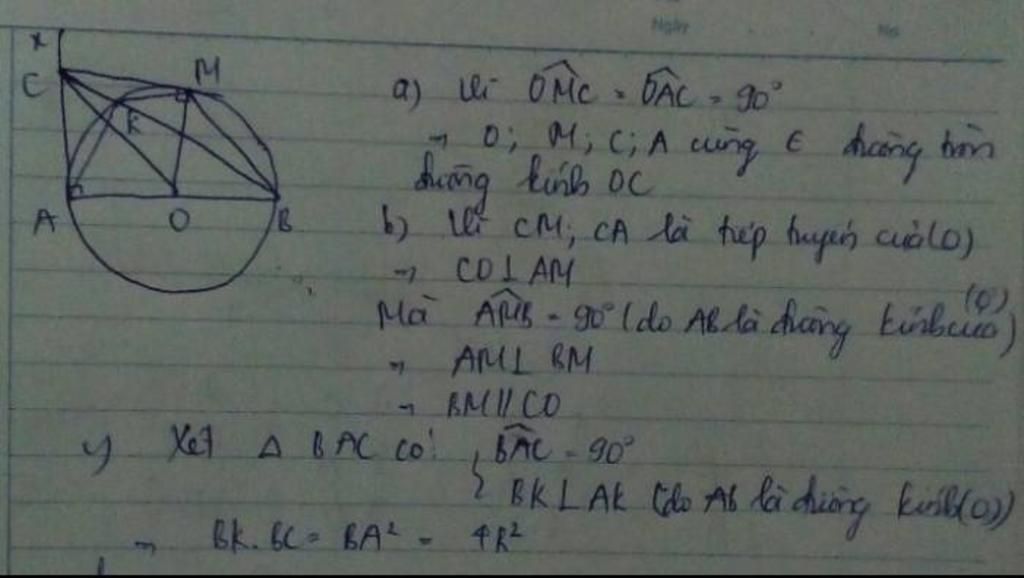 Ngày No
x
C M
K
A O B
a) Vì OM̂C = OÂC = 90°
→ O; M; C; A cùng ∈ đường tròn
đường kính OC
b) Vì CM; CA là tiếp tuyến của (O)
→ CO ⊥ AM
Mà AM̂B = 90° (do AB là đường kính của (O))
→ AM ⊥ BM
→ BM // CO
c) Xét Δ BAC có: { BÂC = 90°
BK ⊥ AK (do AB là đường kính (O))
→ BK.BC = BA² = 4R²